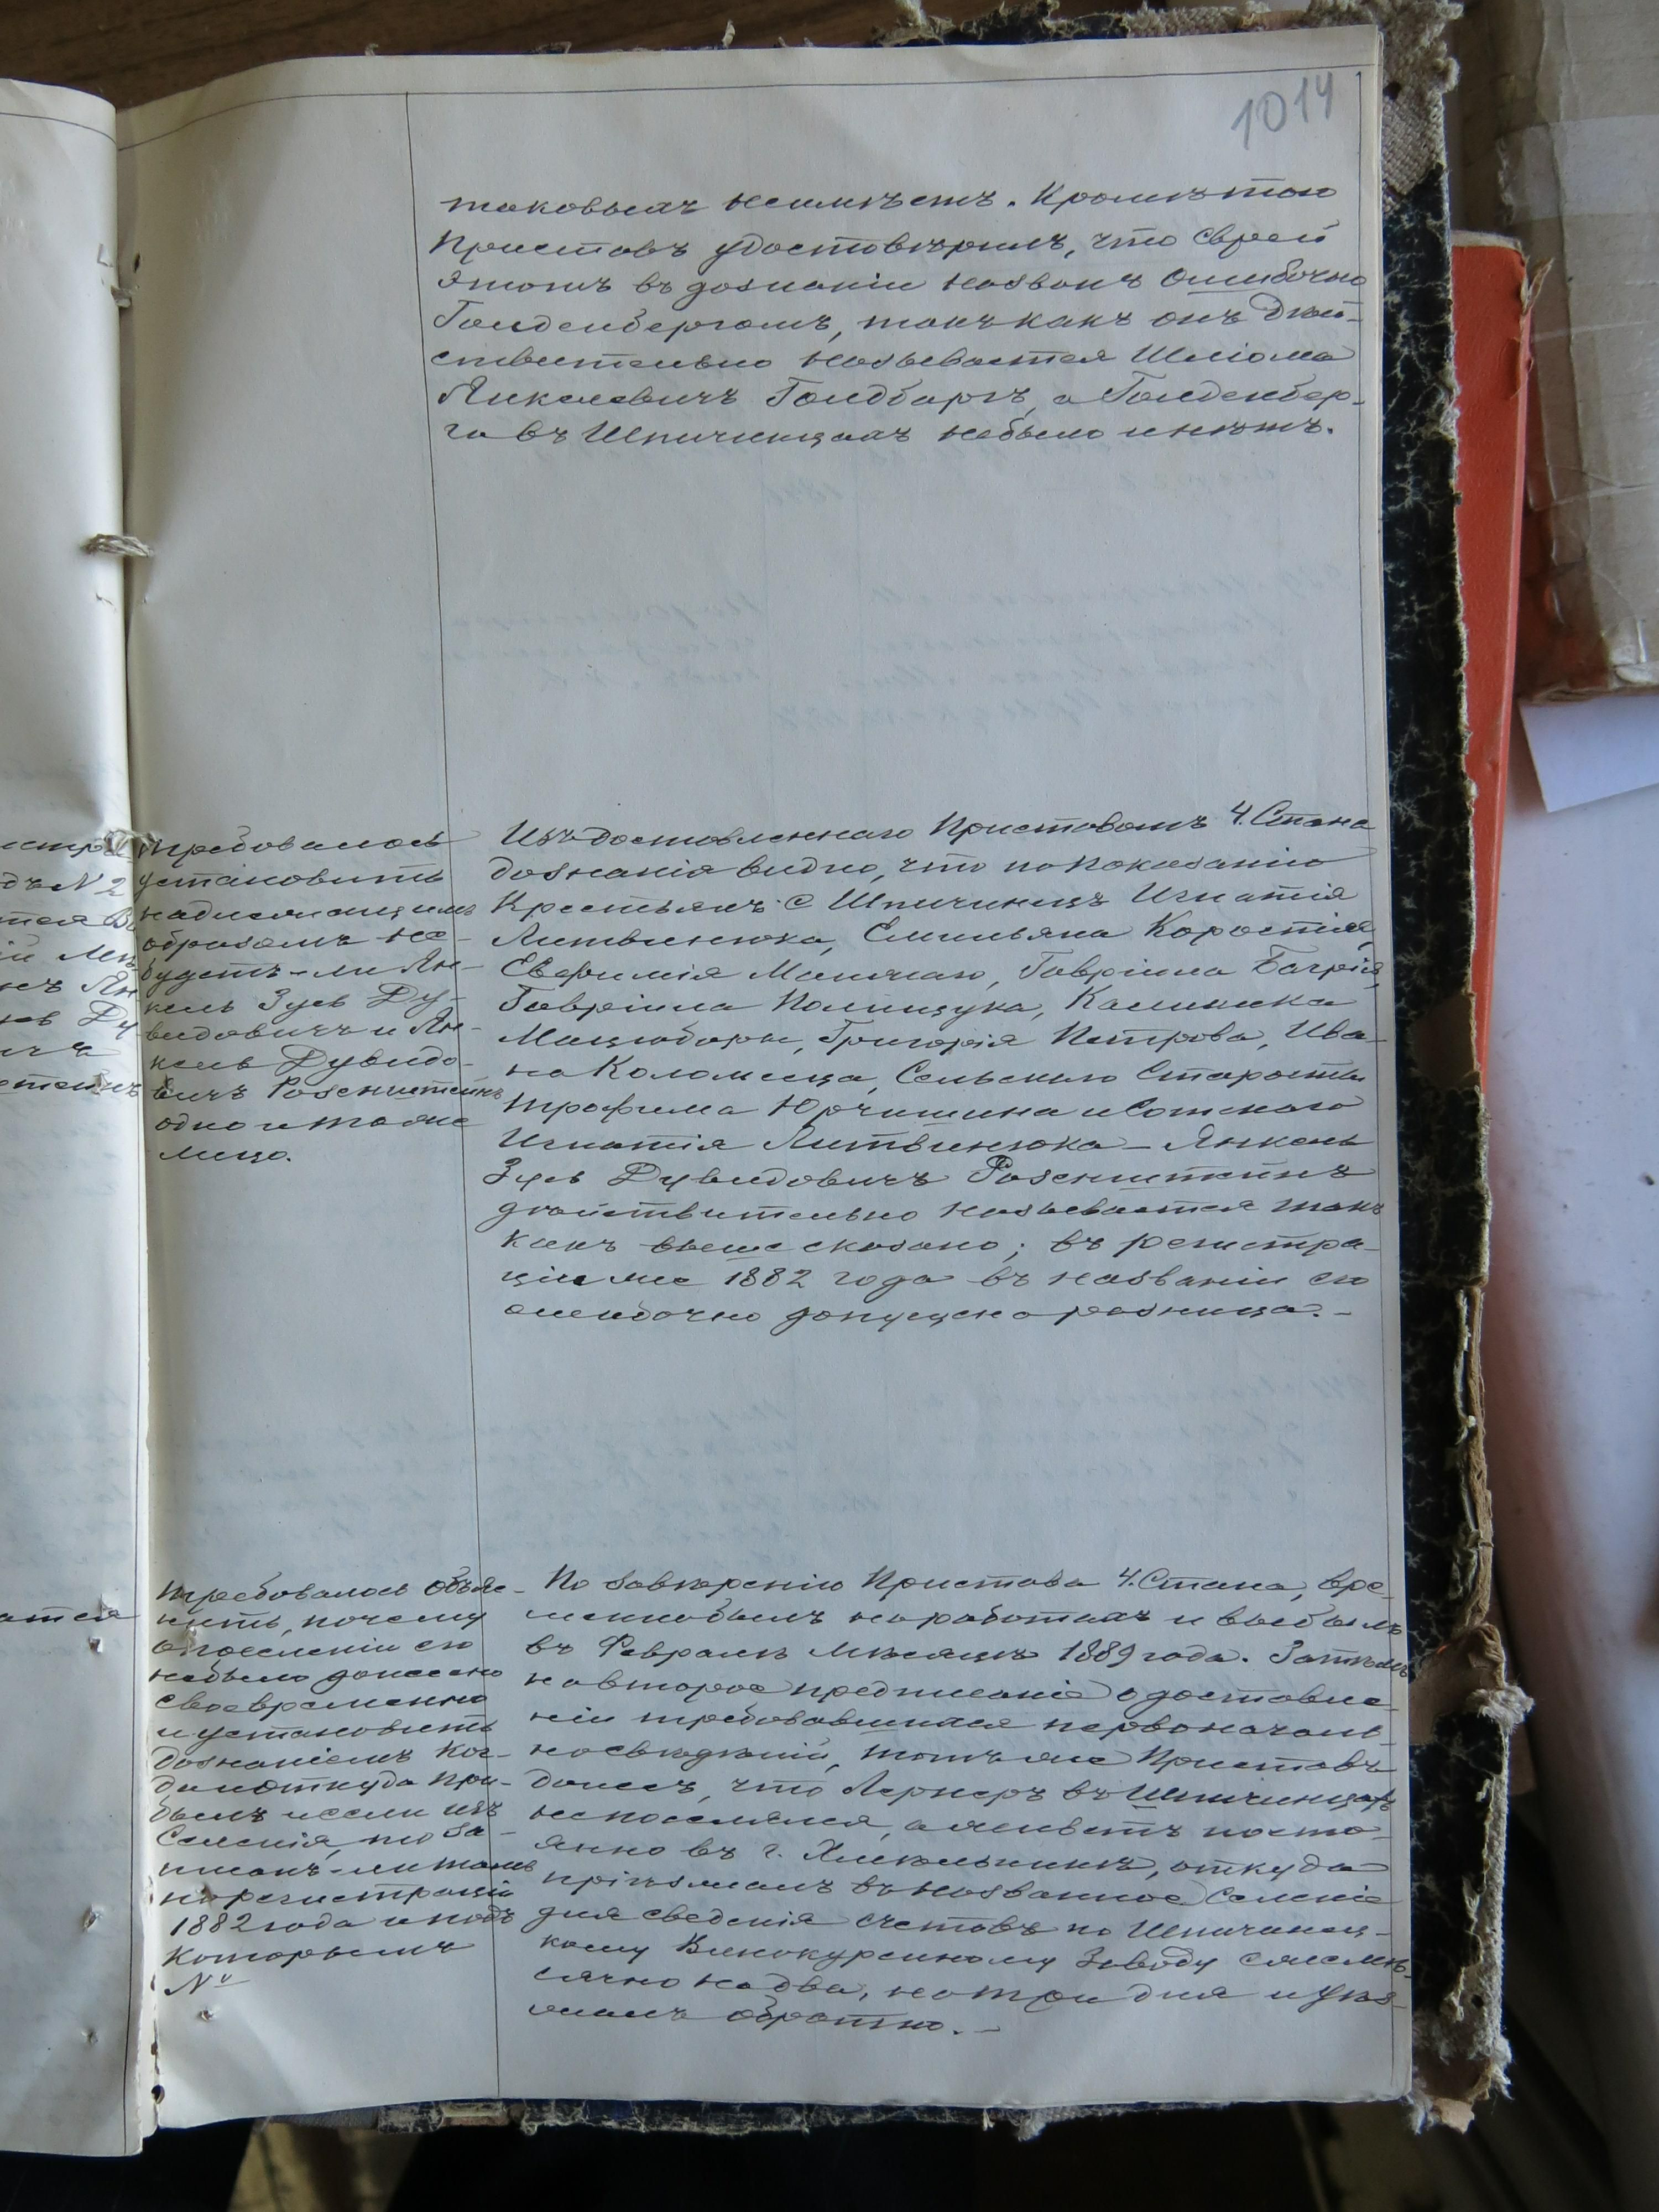 1014
таковыхъ неимѣетъ. Кромѣ того
Приставъ удостовѣрилъ, что еврей
этотъ въ дознаніи названъ ошибочно
Гольденбергомъ, такъ какъ онъ дѣй-
ствительно называется Шлiома
Янкелевичъ Голдбаргъ, а Гольденбер-
га въ Шпичинцахъ небыло и нѣтъ.
требовалось
установить
надлежащимъ
образомъ не-
будетъ-ли Ян-
кель Зусь Ду-
видовичъ и Ян-
кель Дувидо-
вичъ Розенштейнъ
одно и тоже
лицо.
Изъ доставленнаго Приставомъ 4. Стана
дознанія видно, что по показанію
Крестьянъ с Шпичинецъ Игнатія
Литвинюка, Емильяна Коростія,
Евфимія Маличаго, Гавріила Багрія,
Гавріила Полищука, Калиника
Мацюборы, Григорія Петрова, Ива-
на Коломійца, Сельскаго Старосты
Трофима Юрчишина и Сотскаго
Игнатія Литвинюка - Янкель
Зусь Дувидовичъ Розенштейнъ
дѣйствительно называется такъ
какъ выше сказано; въ регистра-
ціи же 1882 года въ названіи его
ошибочно допущена разница. -
требовалось объяс-
нить, почему
о поселеніи его
небыло донесено
своевременно
и установить
дознаніемъ ког-
да и откуда при-
былъ и если изъ
Селенія, то за-
писанъ-ли тамъ
по регистраціи
1882 года и подъ
которымъ
№
По завѣренію Пристава 4. Стана, вре-
менно былъ на работахъ и выбылъ
въ Февралѣ мѣсяцѣ 1889 года. Затѣмъ
на второе предписаніе о доставле-
ніи требовавшихся первоначаль-
но свѣдѣній, тотъ же Приставъ
донесъ, что Лернеръ въ Шпичинцахъ
не поселялся, а живетъ посто-
янно въ г. Хмѣльникѣ, откуда
пріѣзжалъ въ названное Селеніе
для сведенія счетовъ по Шпичинец-
кому Винокуренному Заводу ежемѣ-
сячно на два, на три дня и уѣз-
жалъ обратно. -